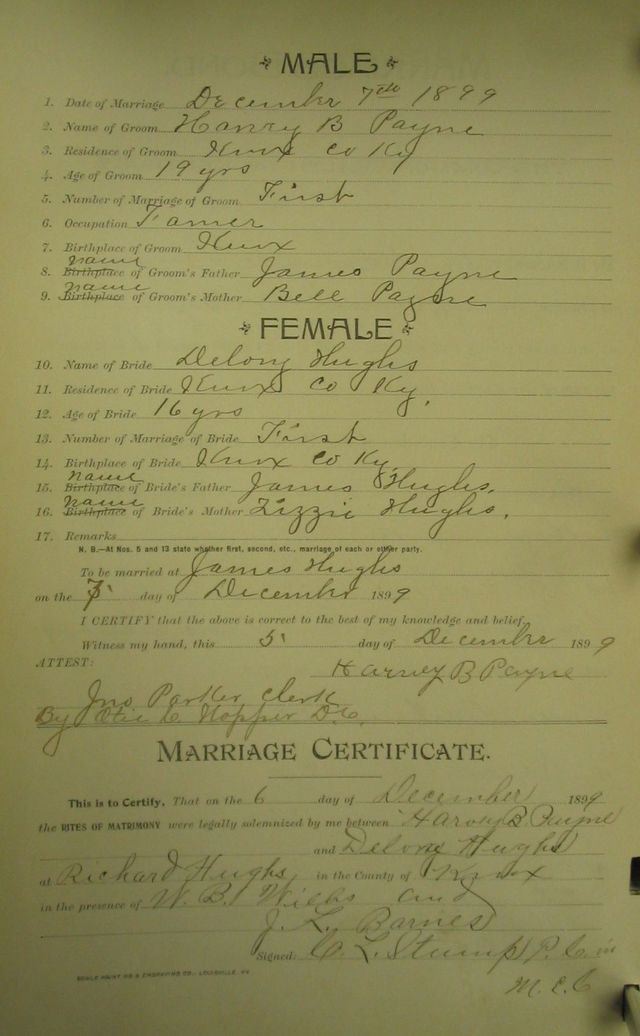 MALE
1. Date of Marriage December 7th 1899
2. Name of Groom Harvey B Payne
3. Residence of Groom Knox Co Ky
4. Age of Groom 19 yrs
5. Number of Marriage of Groom First
6. Occupation Famer
7. Birthplace of Groom Knox
name
8. Birthplace of Groom's Father James Payne
name
9. Birthplace of Groom's Mother Bell Payne
FEMALE
10. Name of Bride Delony Hughs
11. Residence of Bride Knox Co Ky,
12. Age of Bride 16 yrs
13. Number of Marriage of Bride First
14. Birthplace of Bride Knox Co Ky,
name
15. Birthplace of Bride's Father James Hughs.
name
16. Birthplace of Bride's Mother Lizzie Hughs.
17. Remarks
N. B.—At Nos. 5 and 13 state whether first, second, etc., marriage of each or other party.
To be married at James Hughs
on the 7 day of December 1899
I CERTIFY that the above is correct to the best of my knowledge and belief
Witness my hand, this 5 day of December 1899
ATTEST:
Harvey B Payne
Jno Parker Clerk
By Hopper D.C.
MARRIAGE CERTIFICATE.
This is to Certify, That on the 6 day of December 1899
the RITES OF MATRIMONY were legally solemnized by me between Harvey B Payne
and Delony Hughs
at Richard Hughs in the County of Knox
in the presence of W. B. and
J. L. Barnes
Signed: L. Stump P. C. in
M. E. C